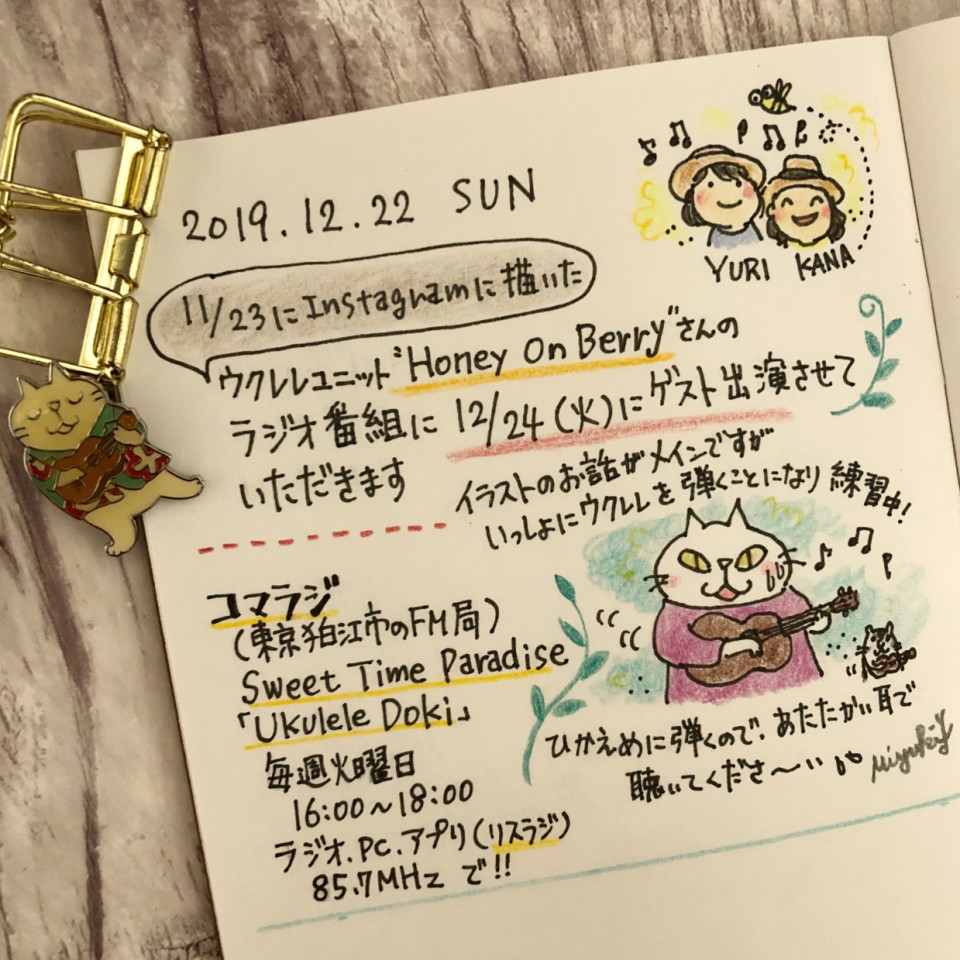 2019.12.22 SUN
YURI KANA
11/23にInstagramに描いた
ウクレレユニット"Honey On Berry"さんの
ラジオ番組に 12/24(火)にゲスト出演させて
いただきます
イラストのお話がメインですが
いっしょにウクレレを弾くことになり 練習中!
コマラジ
(東京狛江市のFM局)
Sweet Time Paradise
「Ukulele Doki」
毎週火曜日
16:00～18:00
ラジオ.PC.アプリ(リスラジ)
85.7MHz で!!
ひかえめに弾くので、あたたかい耳で
聴いてくださ〜い
miyuki